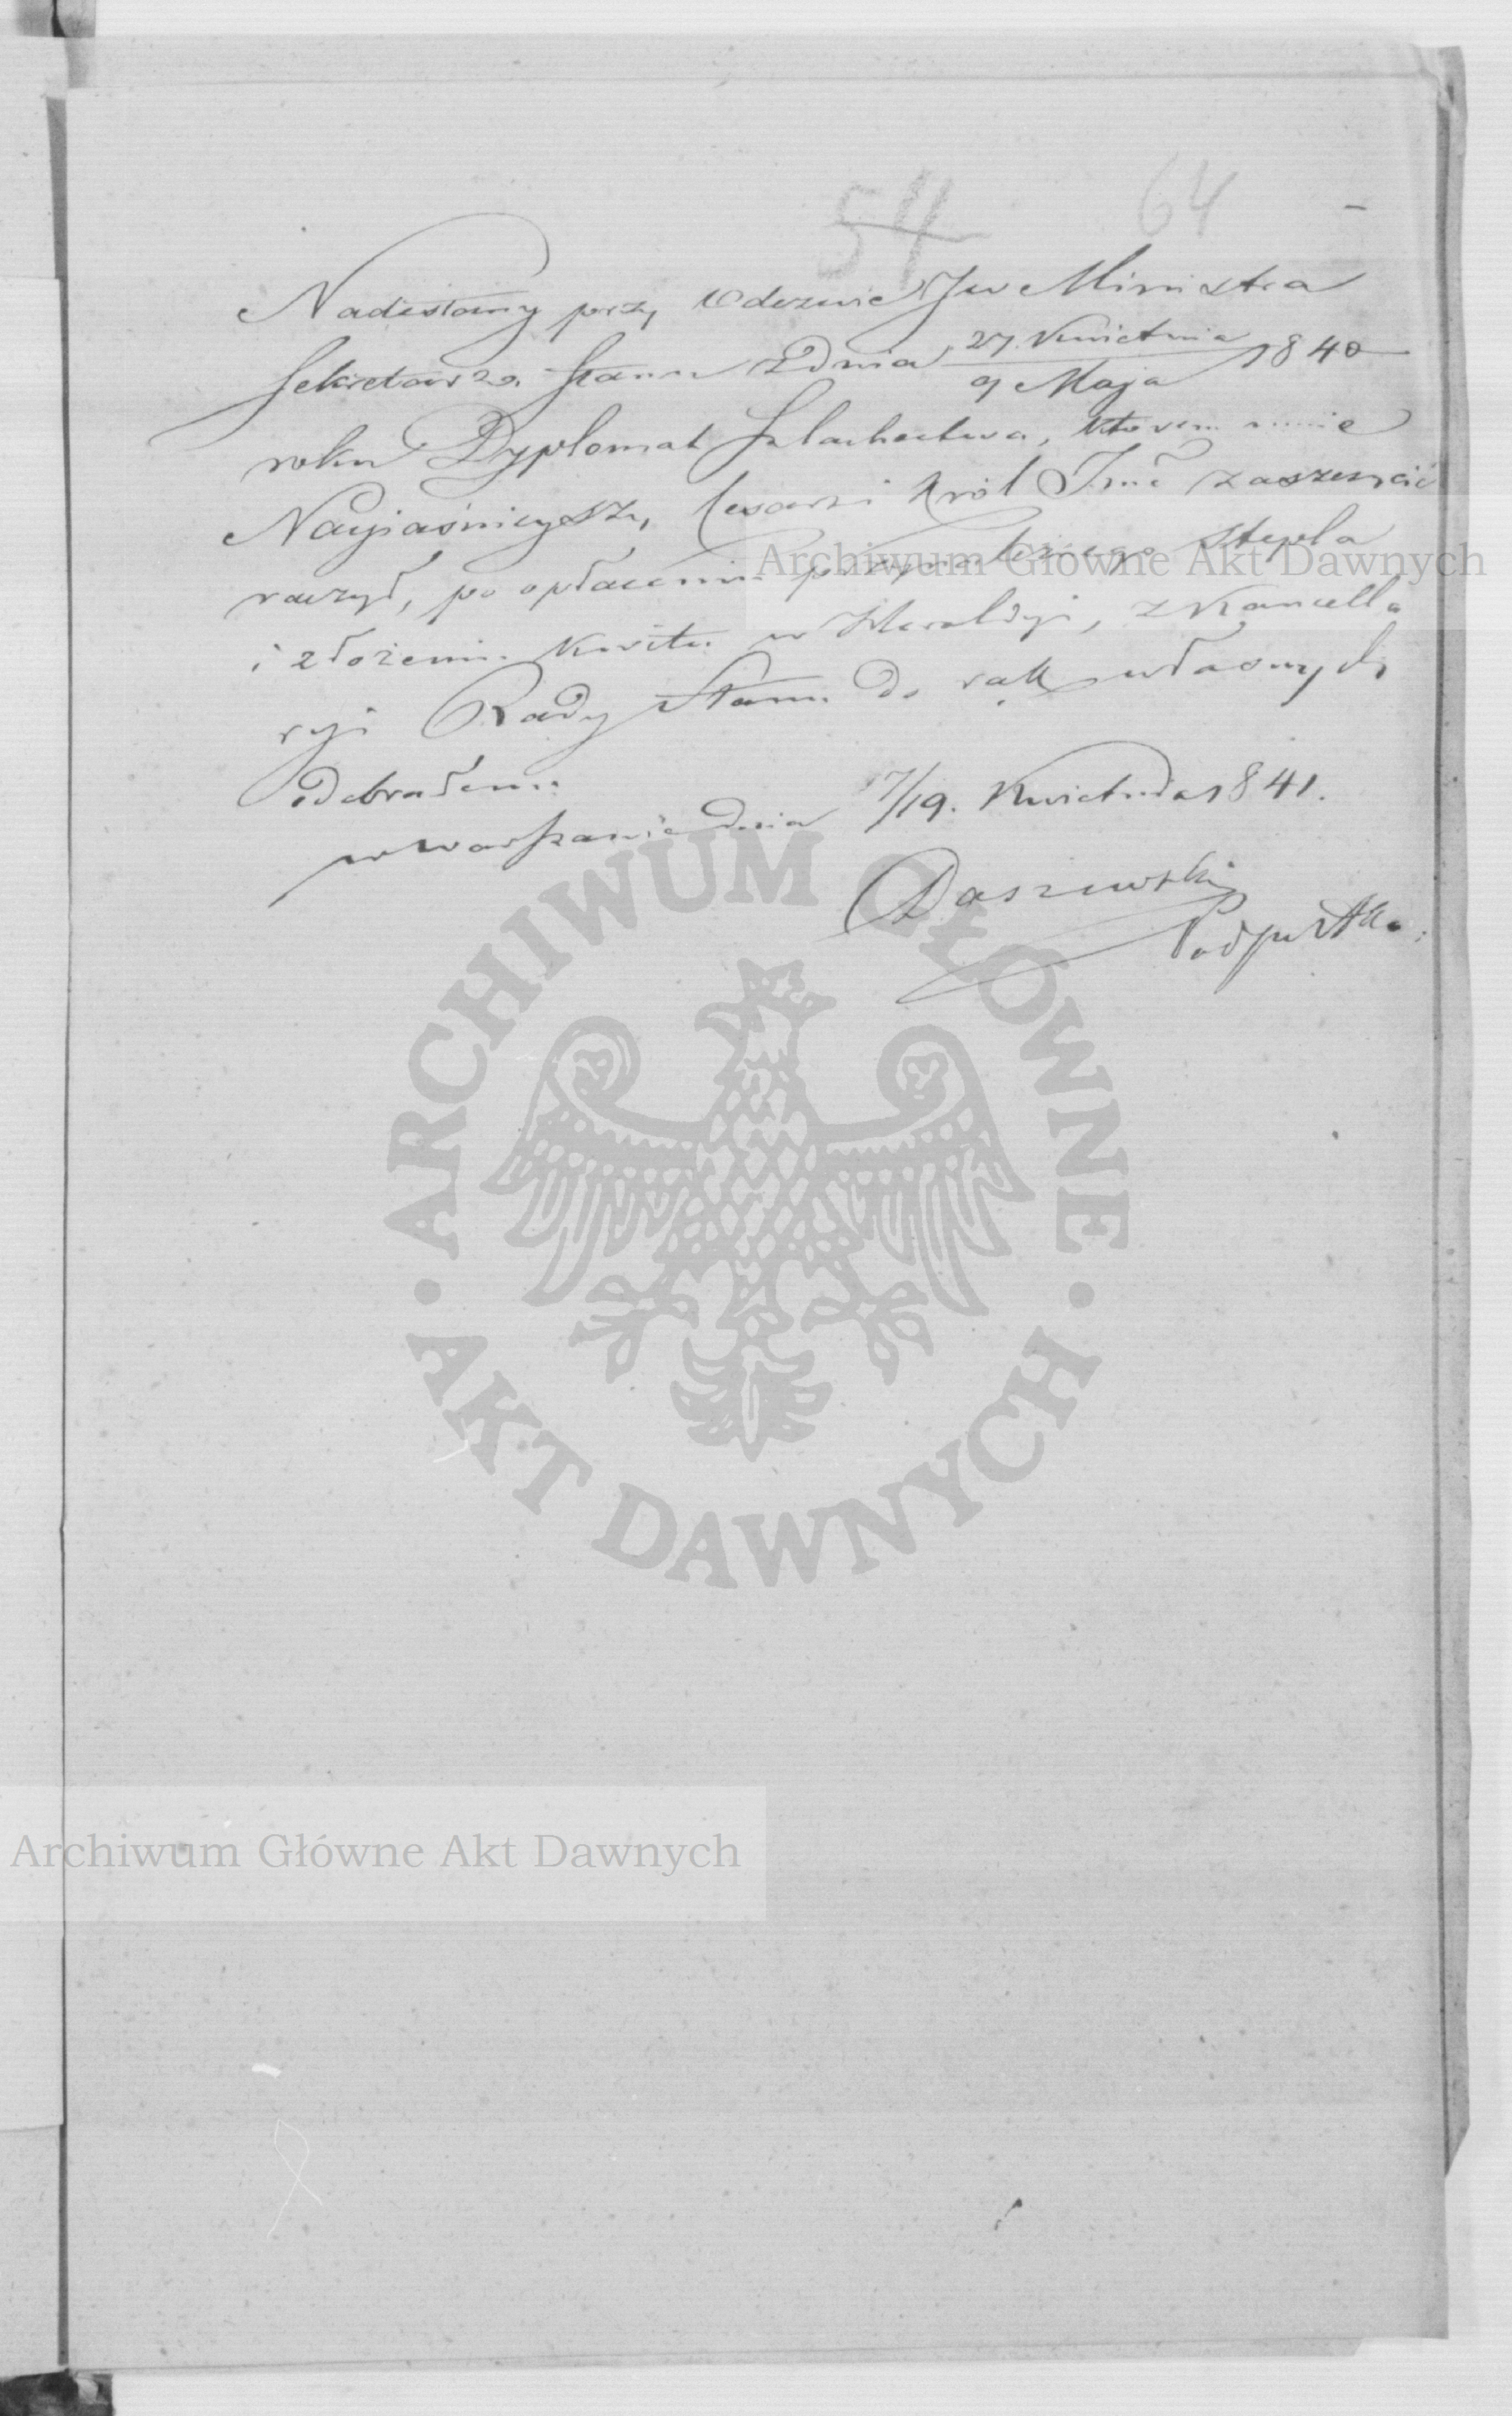 54 64
Nadesłany przy Odezwie Jw Ministra
Sekretarza Stanu z Dnia 27. Kwietnia / 9 Maja 1840
roku Dyplomat Szlachectwa, którem mnie
Nayjaśnieyszy Cesarz i Król Jmć zaszczycić
raczył, po opłaceniu przynależnego stępla
i złożeniu kwitu w Heraldyi, z Kancella
ryi Rady Stanu do rąk własnych
odebrałem.
w Warszawie Dnia 7/19. Kwietnia 1841.
Daszewski
Archiwum Główne Akt Dawnych
ARCHIWUM GŁÓWNE
AKT DAWNYCH
Archiwum Główne Akt Dawnych